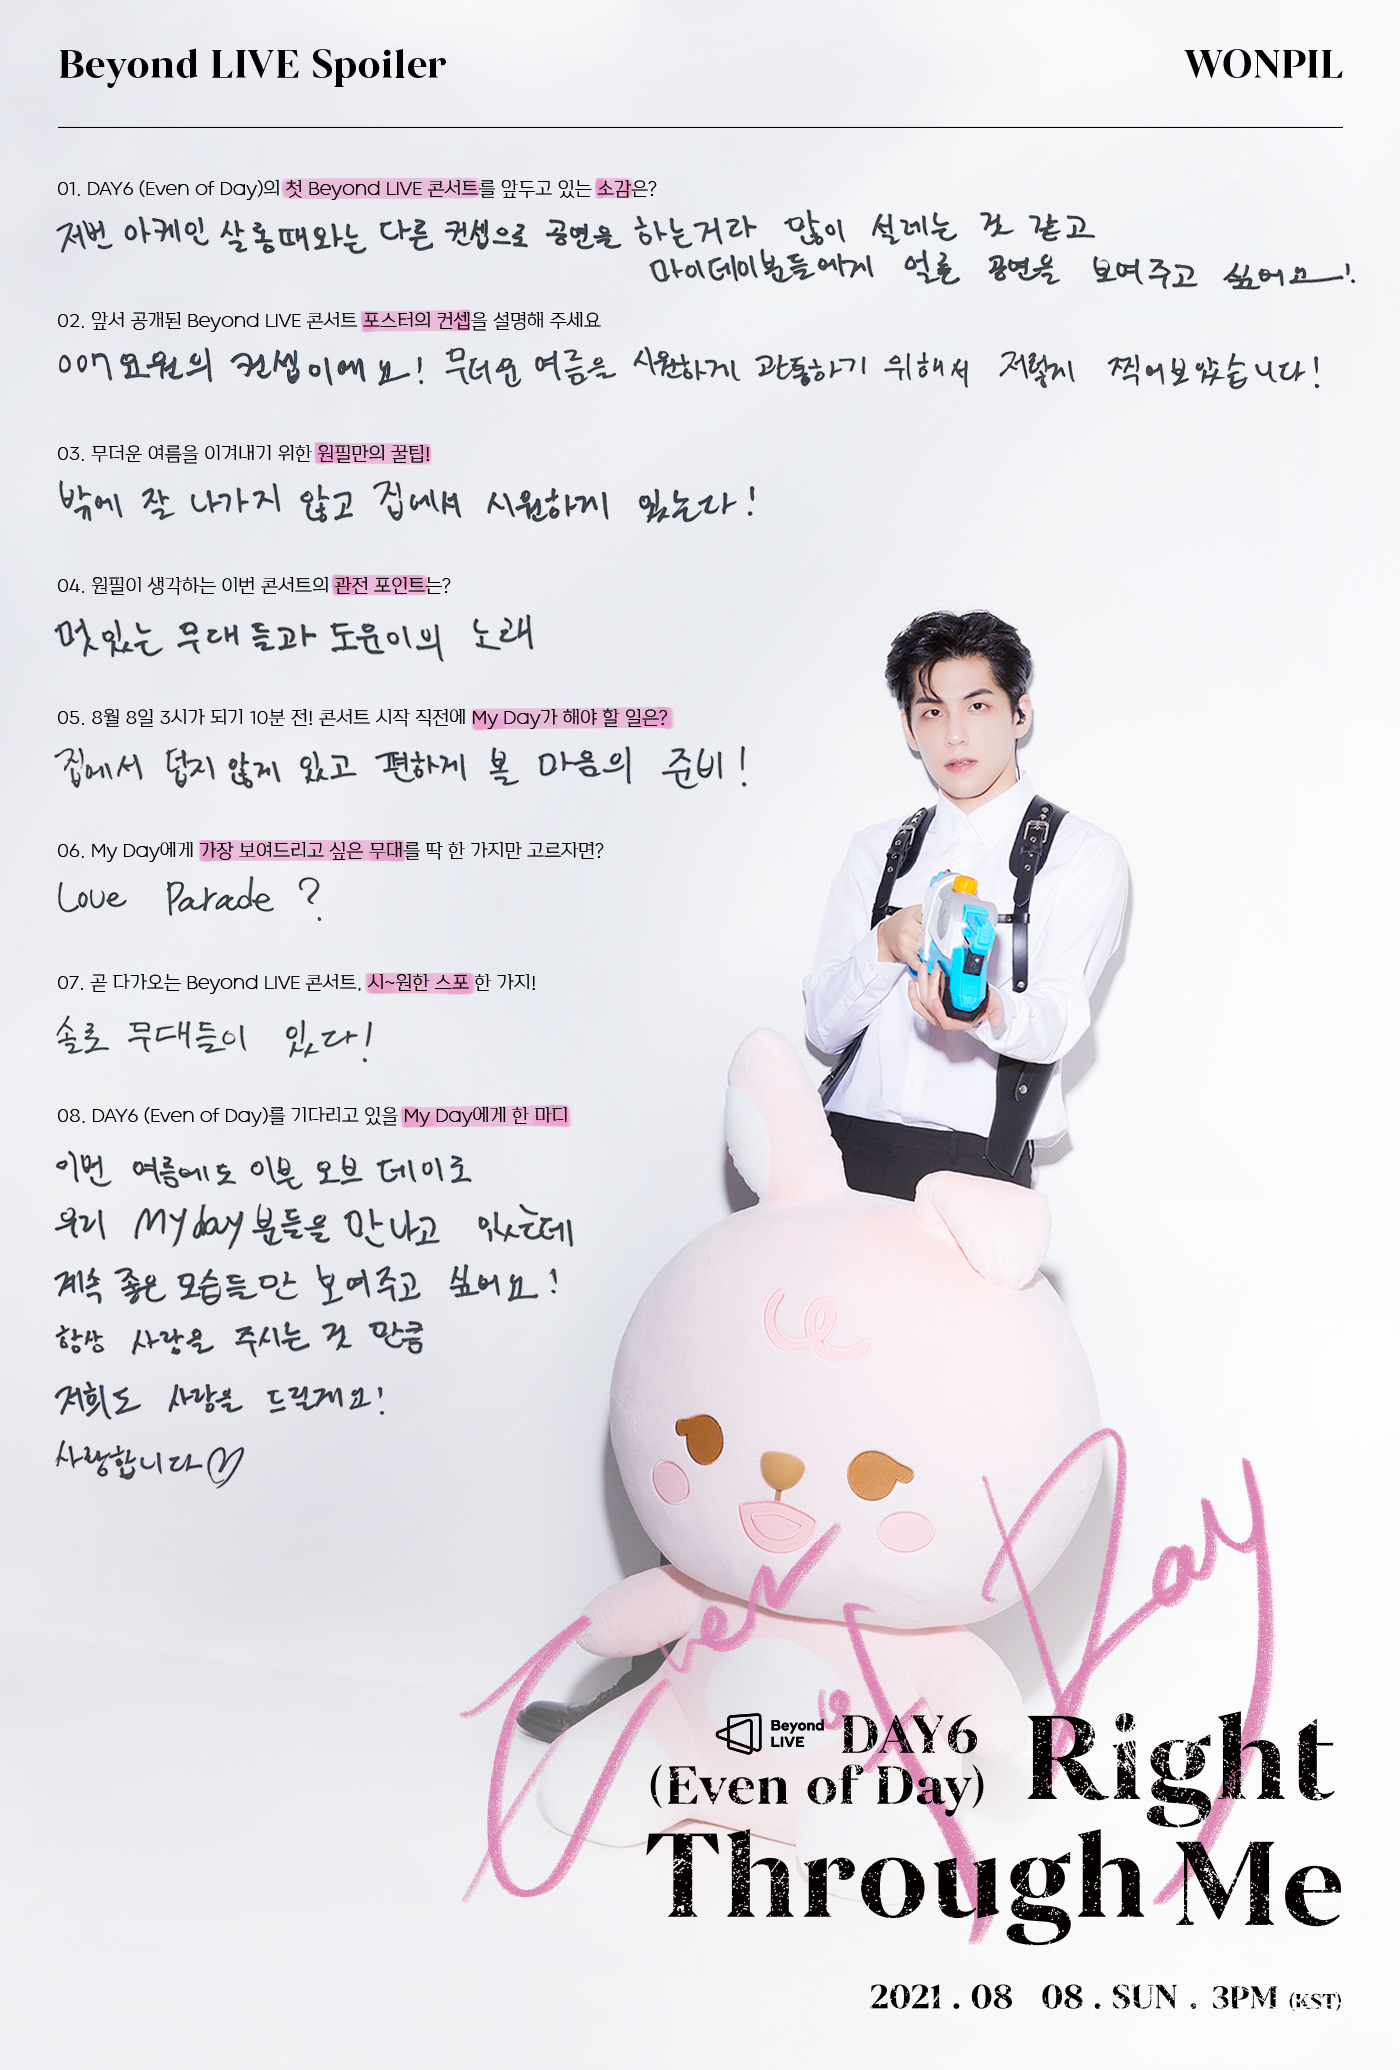 Beyond LIVE Spoiler
WONPIL
01. DAY6 (Even of Day)의 첫 Beyond LIVE 콘서트를 앞두고 있는 소감은?
저번 아케인 살롱때와는 다른 컨셉으로 공연을 하는거라 많이 설레는 것 같고
마이데이분들에게 얼른 공연을 보여주고 싶어요!
02. 앞서 공개된 Beyond LIVE 콘서트 포스터의 컨셉을 설명해 주세요
007 요원의 컨셉이에요! 무더운 여름을 시원하게 관통하기 위해서 저렇게 찍어보았습니다!
03. 무더운 여름을 이겨내기 위한 원필만의 꿀팁!
밖에 잘 나가지 않고 집에서 시원하게 있는다!
04. 원필이 생각하는 이번 콘서트의 관전 포인트는?
멋있는 무대들과 도운이의 노래
05. 8월 8일 3시가 되기 10분 전! 콘서트 시작 직전에 My Day가 해야 할 일은?
집에서 덥지 않게 있고 편하게 볼 마음의 준비!
06. My Day에게 가장 보여드리고 싶은 무대를 딱 한 가지만 고르자면?
Love Parade ?
07. 곧 다가오는 Beyond LIVE 콘서트, 시~원한 스포 한 가지!
솔로 무대들이 있다!
08. DAY6 (Even of Day)를 기다리고 있을 My Day에게 한 마디
이번 여름에도 이븐 오브 데이로
우리 My day분들을 만나고 있는데
계속 좋은 모습들만 보여주고 싶어요!
항상 사랑을 주시는 것 만큼
저희도 사랑을 드릴게요!
사랑합니다♡
Even of Day
Beyond LIVE
DAY6
(Even of Day)
Right
Through Me
2021 . 08 08 . SUN . 3PM (KST)